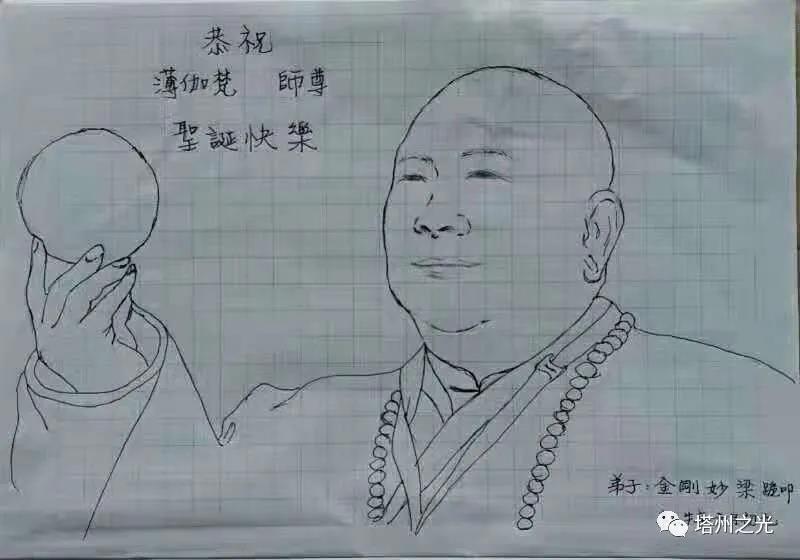 恭祝
薄伽梵 師尊
聖誕快樂
弟子：金剛妙梁跪叩
塔州之光